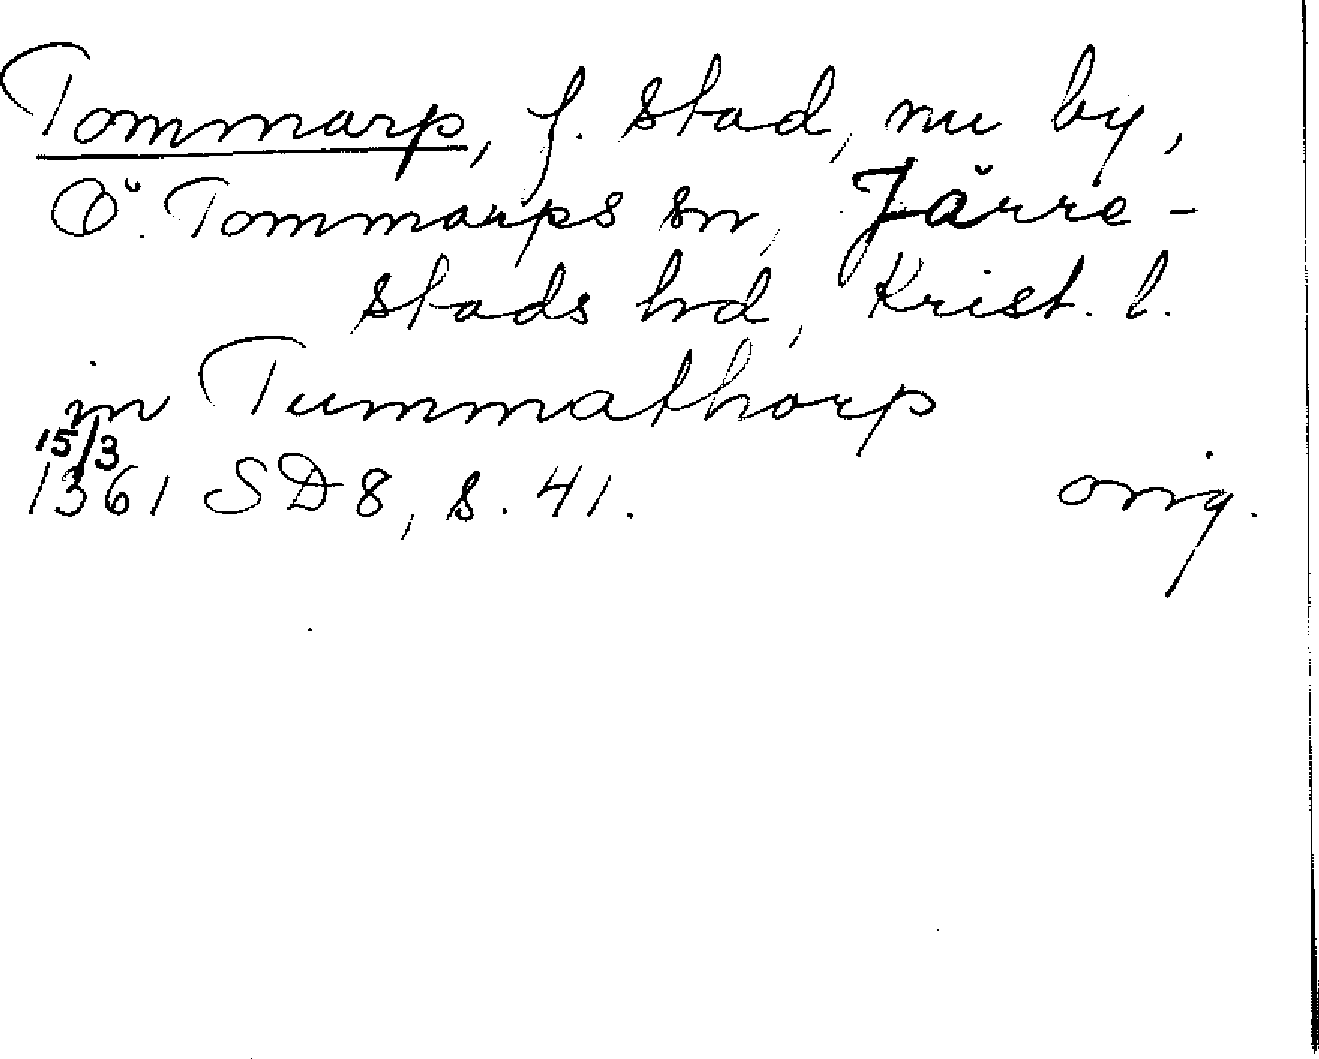 Tommarp, f. stad, nu by,
Ö. Tommarps sn, Järre-
stads hd, Krist. l.
in Tummathorp
15/3
1361 SD 8, s. 41. orig.